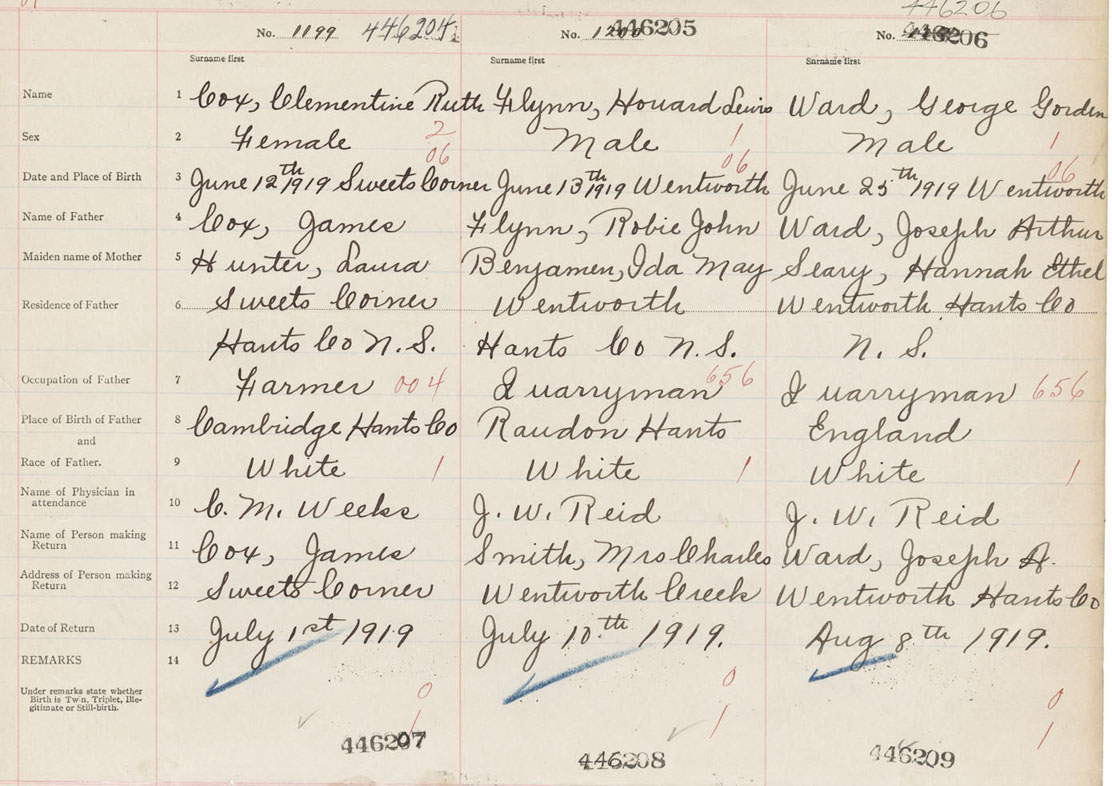 446206
No. 1199 446204 No. 1200 446205 No. 446206
Surname first Surname first Surname first
Name 1 Cox, Clementine Ruth Flynn, Howard Lewis Ward, George Gorden
Sex 2 Female 2 Male 1 Male 1
06 06 06
Date and Place of Birth 3 June 12th 1919 Sweets Corner June 13th 1919 Wentworth June 25th 1919 Wentworth
Name of Father 4 Cox, James Flynn, Robie John Ward, Joseph Arthur
Maiden name of Mother 5 Hunter, Laura Benjamen, Ida May Seary, Hannah Ethel
Residence of Father 6 Sweets Corner Wentworth Wentworth Hants Co
Hants Co N.S. Hants Co N.S. N.S.
Occupation of Father 7 Farmer 004 Quarryman 656 Quarryman 656
Place of Birth of Father 8 Cambridge Hants Co Raudon Hants England
and
Race of Father. 9 White 1 White 1 White 1
Name of Physician in
attendance 10 C. M. Weeks J. W. Reid J. W. Reid
Name of Person making
Return 11 Cox, James Smith, Mrs Charles Ward, Joseph A.
Address of Person making
Return 12 Sweets Corner Wentworth Creek Wentworth Hants Co
Date of Return 13 July 1st 1919 July 10th 1919. Aug 8th 1919.
REMARKS 14
Under remarks state whether
Birth is Twin, Triplet, Ille-
gitimate or Still-birth.
0 0 0
1 1 1
446207 446208 446209